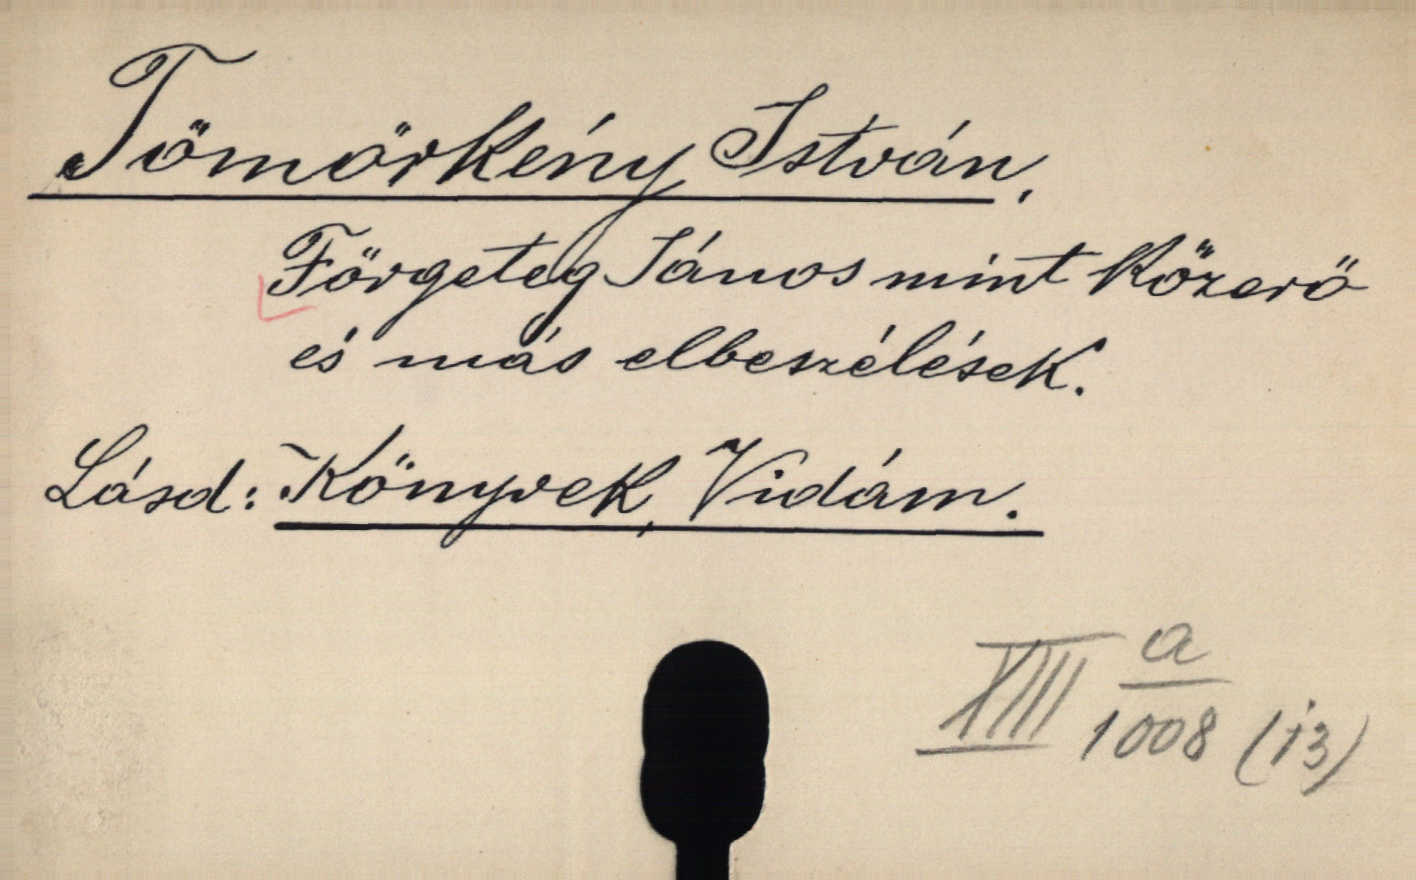 Tömörkény István,
Förgeteg János mint közerő
és más elbeszélések.
Lásd: Könyvek, Vidám.
XIII a/1008 (13)